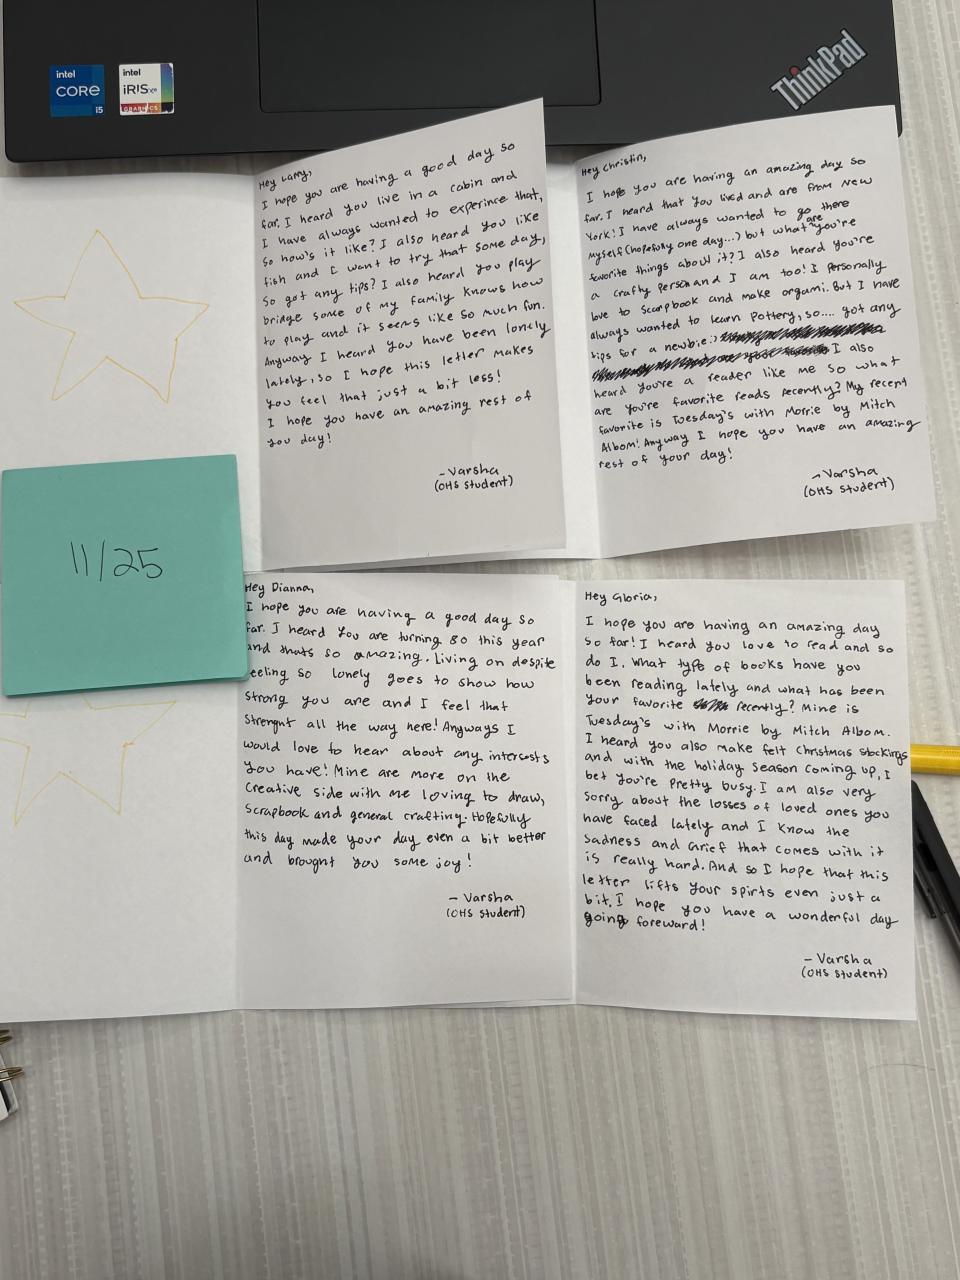 intel
CORE
i5
intel
iRIS xe
GRAPHICS
ThinkPad
Hey Larry,
I hope you are having a good day so
far. I heard you live in a cabin and
I have always wanted to experince that,
so how's it like? I also heard you like
fish and I want to try that some day,
so got any tips? I also heard you play
bridge some of my family knows how
to play and it seems like so much fun.
Anyway I heard you have been lonely
lately, so I hope this letter makes
you feel that just a bit less!
I hope you have an amazing rest of
you day!
- Varsha
(OHS student)
Hey Christin,
I hope you are having an amazing day so
far. I heard that you lived and are from New
York! I have always wanted to go there
myself (hopefully one day...) but what are you're
favorite things about it? I also heard you're
a crafty person and I am too! I personally
love to Scarpbook and make orgami. But I have
always wanted to learn Pottery, so.... got any
tips for a newbie:)
I also
heard you're a reader like me so what
are you're favorite reads recently? My recent
favorite is Tuesday's with Morrie by Mitch
Albom! Anyway I hope you have an amazing
rest of your day!
- Varsha
(OHS student)
11/25
Hey Dianna,
I hope you are having a good day so
far. I heard you are turning 80 this year
and thats so amazing. Living on despite
feeling so lonely goes to show how
strong you are and I feel that
strenght all the way here! Anyways I
would love to hear about any intercosts
you have! Mine are more on the
creative side with me loving to draw,
scrapbook and general crafting. Hopefully
this day made your day even a bit better
and brought you some joy!
- Varsha
(OHS student)
Hey Gloria,
I hope you are having an amazing day
so far! I heard you love to read and so
do I. What type of books have you
been reading lately and what has been
your favorite recently? Mine is
Tuesday's with Morrie by Mitch Albom.
I heard you also make felt Christmas stockings
and with the holiday season coming up, I
bet you're pretty busy. I am also very
sorry about the losses of loved ones you
have faced lately and I know the
sadness and grief that comes with it
is really hard. And so I hope that this
letter lifts your spirts even just a
bit. I hope you have a wonderful day
going foreward!
- Varsha
(OHS student)